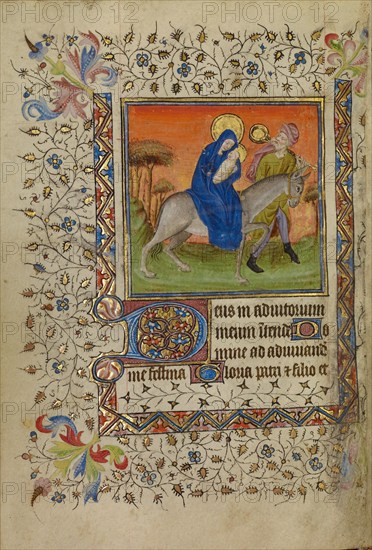 Deus in adiutorium
meum intende Do
mine ad adiuuand̄
me festina Gloria patri & filio et